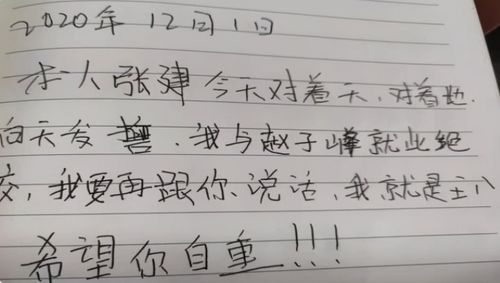 2020年12月1日
本人张建今天对着天、对着地.
向天发誓.我与赵子峰就此绝
交,我要再跟你说话,我就是王八
希望你自重!!!